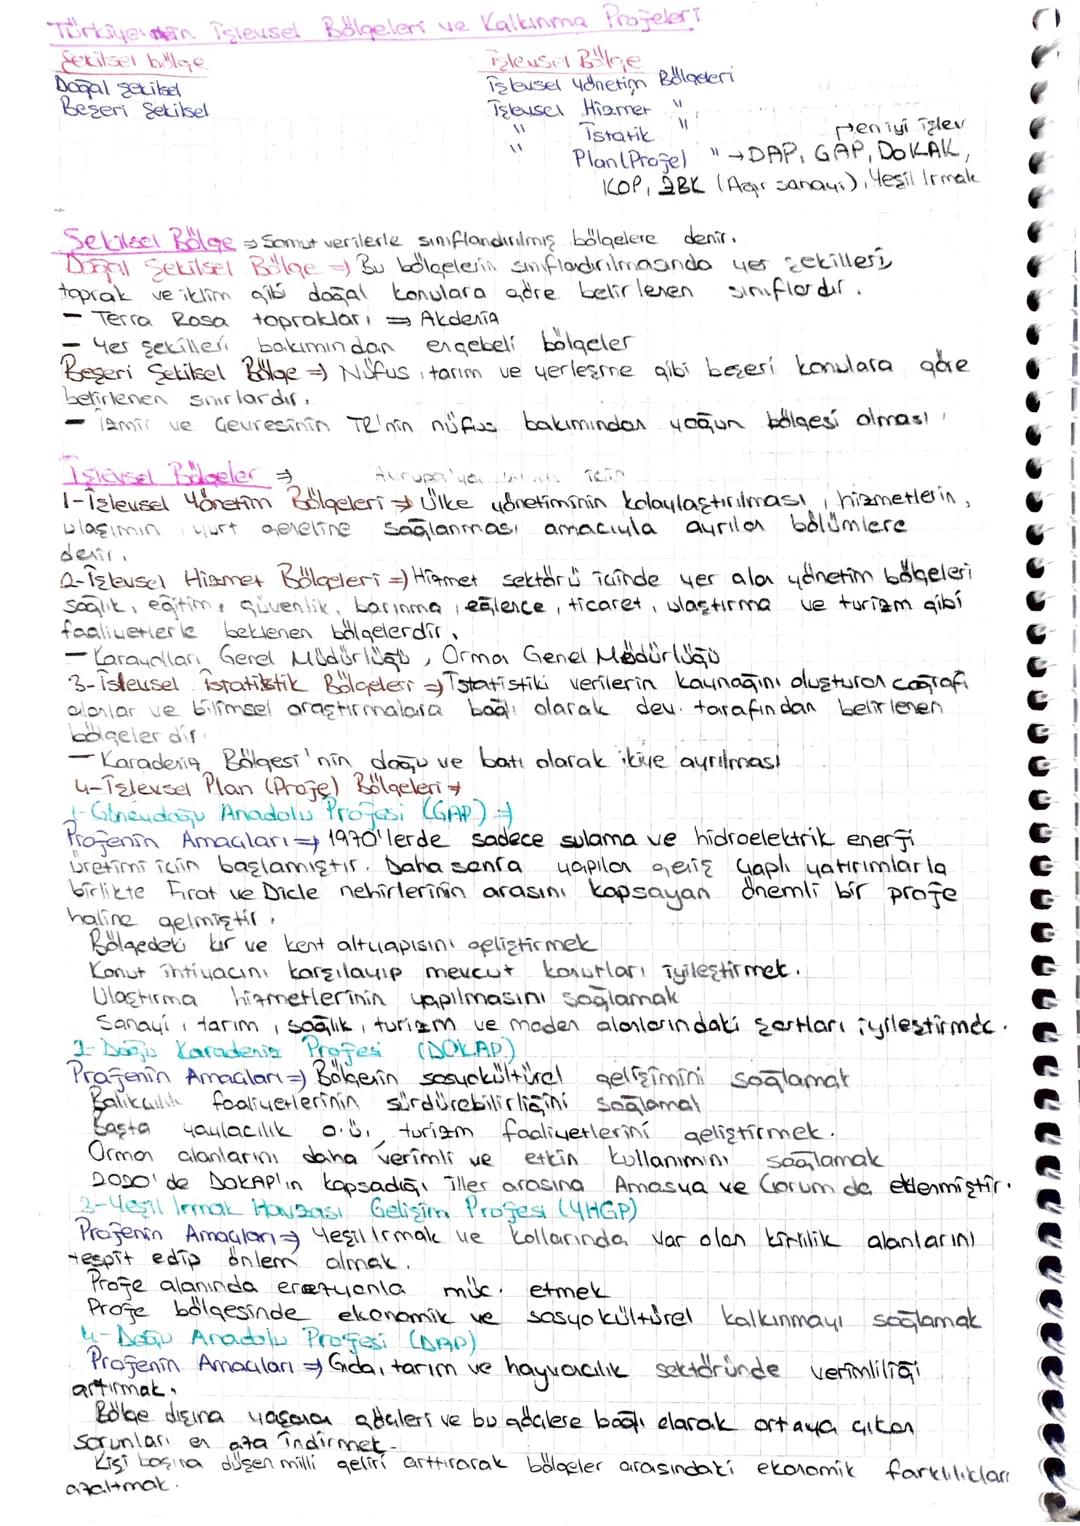 Türkiye'nin İşlevsel Bölgeleri ve Kalkınma Projeleri
Şekilsel bölge
İşlevsel Bölge
Doğal şekilsel
Beşeri Şekilsel
İşlevsel Yönetim Bölgeleri
İşlevsel Hizmet "
" İstatik "
" Plan (Proje) " → DAP, GAP, DOKAK,
en iyi işlev
KOP, ZBK (Ağır sanayi), Yeşil Irmak
Şekilsel Bölge ⇒ Somut verilerle sınıflandırılmış bölgelere denir.
Doğal Şekilsel Bölge ⇒ Bu bölgelerin sınıflandırılmasında yer şekilleri,
toprak ve iklim gibi doğal konulara göre belirlenen sınıflardır.
- Terra Rosa toprakları ⇒ Akdeniz
- Yer şekilleri bakımından engebeli bölgeler
Beşeri Şekilsel Bölge ⇒ Nüfus, tarım ve yerleşme gibi beşeri konulara göre
belirlenen sınırlardır.
- İzmir ve Çevresinin TR'nin nüfus bakımından yoğun bölgesi olması
İşlevsel Bölgeler ⇒ Avrupa'ya için
1-İşlevsel Yönetim Bölgeleri ⇒ Ülke yönetiminin kolaylaştırılması, hizmetlerin,
ulaşımın yurt geneline sağlanması amacıyla ayrılan bölümlere
denir.
2-İşlevsel Hizmet Bölgeleri ⇒ Hizmet sektörü içinde yer alan yönetim bölgeleri
sağlık, eğitim, güvenlik, barınma, eğlence, ticaret, ulaştırma ve turizm gibi
faaliyetlerle beklenen bölgelerdir.
- Karayolları Genel Müdürlüğü, Orman Genel Müdürlüğü
3-İşlevsel İstatistik Bölgeleri ⇒ İstatistiki verilerin kaynağını oluşturan coğrafi
alanlar ve bilimsel araştırmalara bağlı olarak dev. tarafından belirlenen
bölgelerdir.
- Karadeniz Bölgesi'nin doğu ve batı olarak ikiye ayrılması
4-İşlevsel Plan (Proje) Bölgeleri ⇒
1-Güneydoğu Anadolu Projesi (GAP) ⇒
Projenin Amaçları ⇒ 1970'lerde sadece sulama ve hidroelektrik enerji
üretimi için başlamıştır. Daha sonra yapılan geniş çaplı yatırımlarla
birlikte Fırat ve Dicle nehirlerinin arasını kapsayan önemli bir proje
haline gelmiştir.
Bölgedeki kır ve kent altyapısını geliştirmek
Konut ihtiyacını karşılayıp mevcut konutları iyileştirmek.
Ulaştırma hizmetlerinin yapılmasını sağlamak
Sanayi, tarım, sağlık, turizm ve maden alanlarındaki şartları iyileştirmek.
2-Doğu Karadeniz Projesi (DOKAP)
Projenin Amaçları ⇒ Bölgenin sosyokültürel gelişimini sağlamak
Balıkçılık faaliyetlerinin sürdürebilirliğini sağlamak
Başta yaylacılık o.ü. turizm faaliyetlerini geliştirmek.
Orman alanlarını daha verimli ve etkin kullanımını sağlamak
2020'de DOKAP'ın kapsadığı iller arasına Amasya ve Çorum da eklenmiştir.
3-Yeşil Irmak Havzası Gelişim Projesi (YHGP)
Projenin Amaçları ⇒ Yeşil Irmak ve kollarında var olan kirlilik alanlarını
tespit edip önlem almak.
Proje alanında erozyonla müc. etmek
Proje bölgesinde ekonomik ve sosyokültürel kalkınmayı sağlamak
4-Doğu Anadolu Projesi (DAP)
Projenin Amaçları ⇒ Gıda, tarım ve hayvancılık sektöründe verimliliği
artırmak.
Bölge dışına yaşanan göçleri ve bu göçlere bağlı olarak ortaya çıkan
sorunları en aza indirmek.
Kişi başına düşen milli geliri arttırarak bölgeler arasındaki ekonomik farklılıkları
azaltmak.